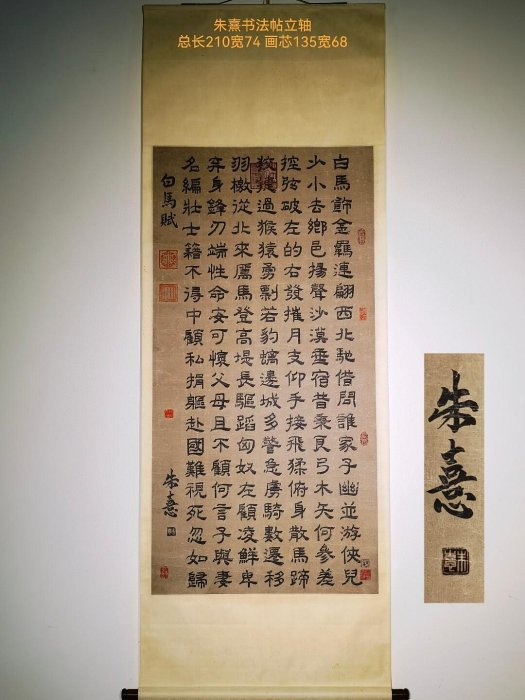 朱熹书法帖立轴
总长210宽74 画芯135宽68
白馬飾金羈連翩西北馳借問誰家子幽並游俠兒
少小去鄉邑揚聲沙漠垂宿昔秉良弓木矢何參差
控弦破左的右發摧月支仰手接飛猱俯身散馬蹄
狡捷過猴猿勇剽若豹螭邊城多警急虜騎數遷移
羽檄從北來厲馬登高堤長驅蹈匈奴左顧凌鮮卑
弃身鋒刃端性命安可懷父母且不顧何言子與妻
名編壯士籍不得中顧私捐軀赴國難視死忽如歸
白馬賦
朱熹
朱熹